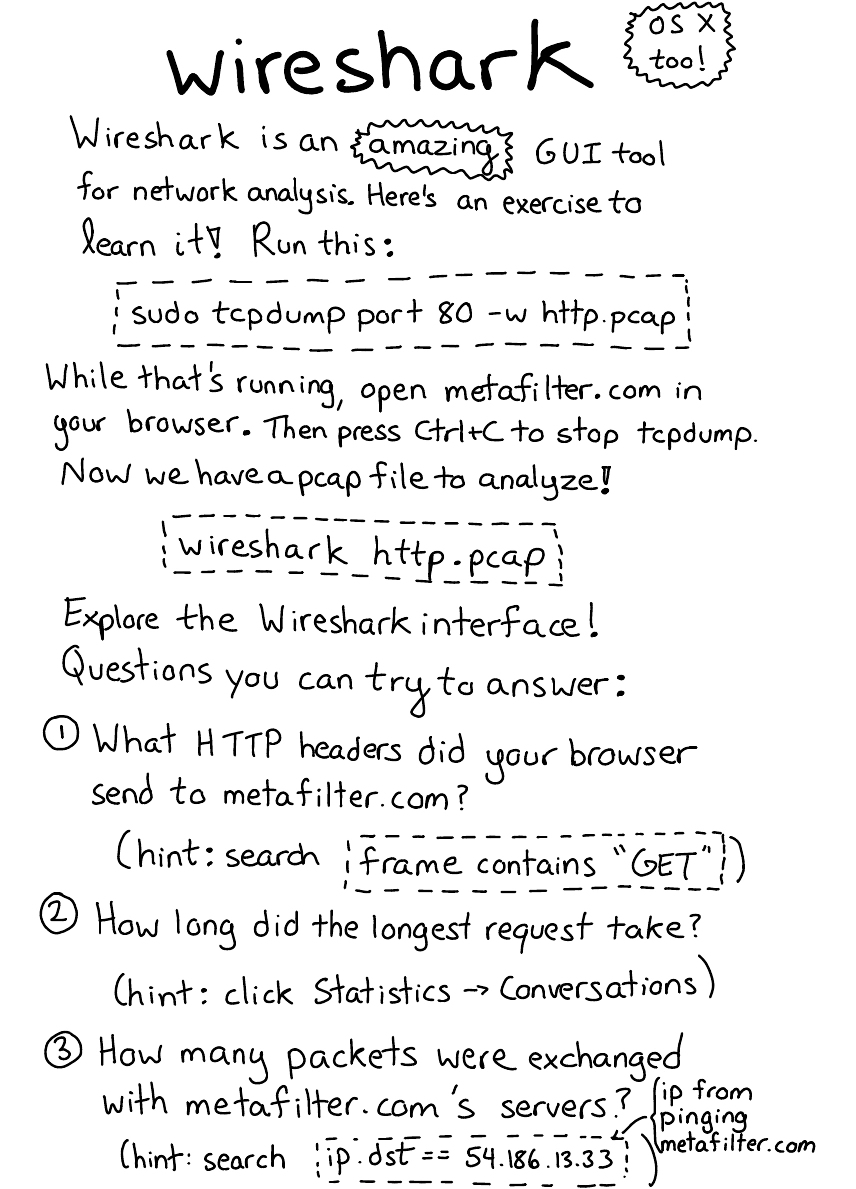 wireshark
OS X
too!
Wireshark is an amazing GUI tool
for network analysis. Here's an exercise to
learn it! Run this:
sudo tcpdump port 80 -w http.pcap
While that's running, open metafilter.com in
your browser. Then press Ctrl+C to stop tcpdump.
Now we have a pcap file to analyze!
wireshark http.pcap
Explore the Wireshark interface!
Questions you can try to answer:
① What HTTP headers did your browser
send to metafilter.com?
(hint: search frame contains "GET")
② How long did the longest request take?
(hint: click Statistics → Conversations)
③ How many packets were exchanged
with metafilter.com's servers?
(hint: search ip.dst == 54.186.13.33)
ip from
pinging
metafilter.com